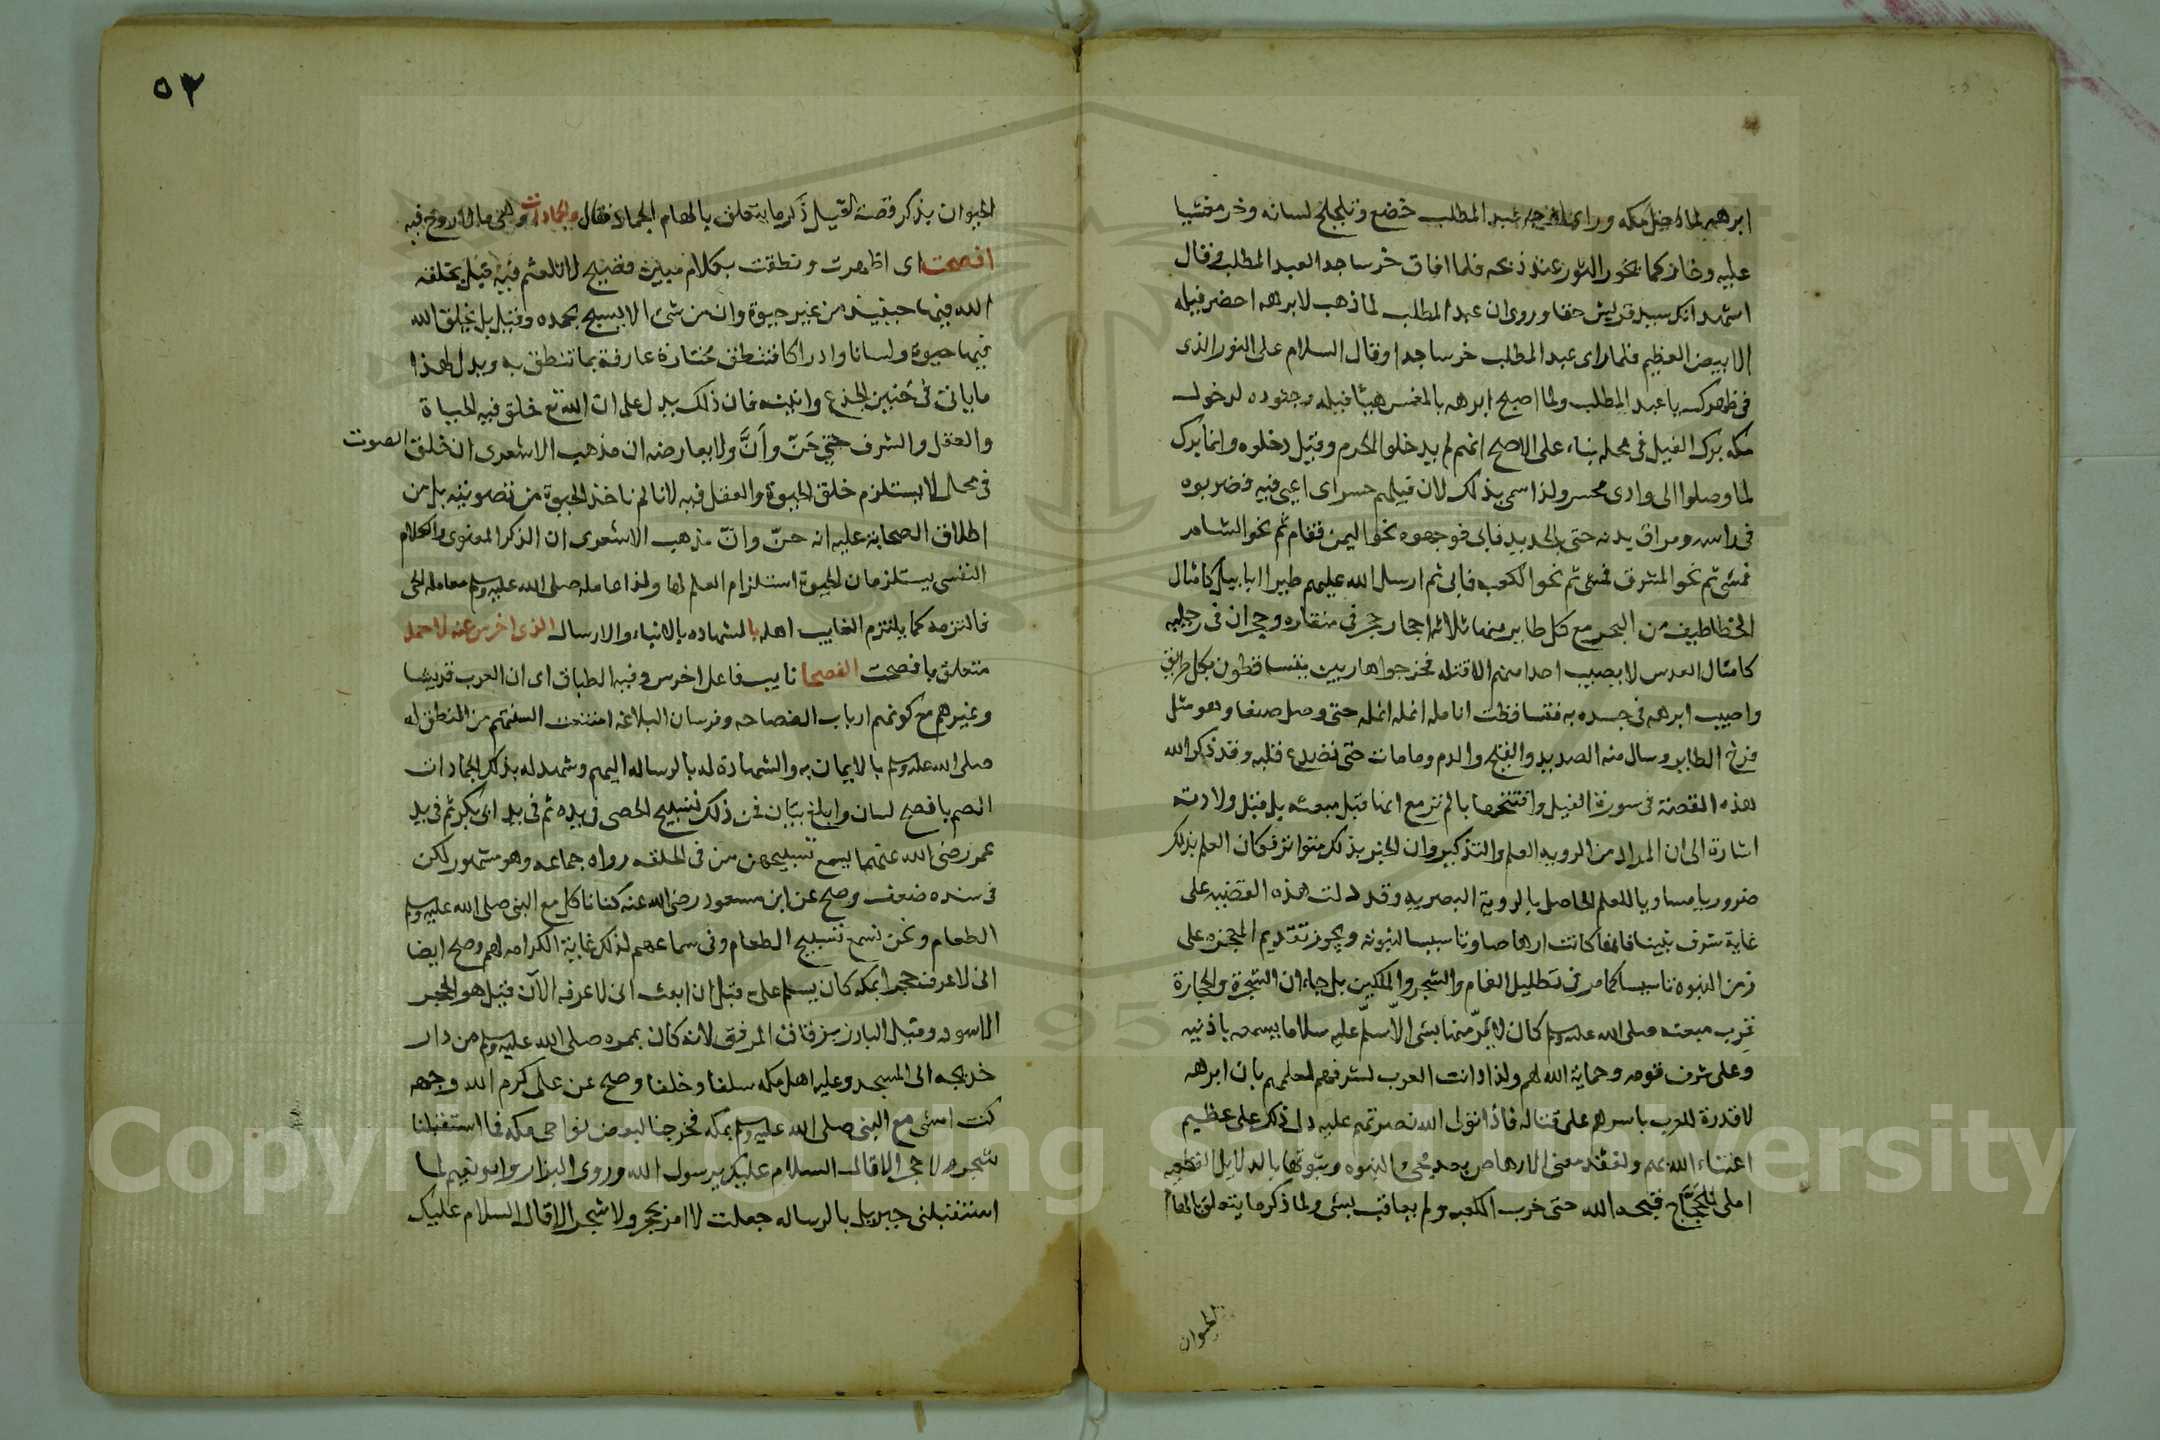 ابرهه لما دخل مكه وراى عبد المطلب خضع وتلجلج لسانه وخر مغشيا
عليه وخار كما يخور الثور عند ذبحه فلما افاق خر ساجدا لعبد المطلب وقال
اشهد انك سيد قريش حقا وروى ان عبد المطلب لما ذهب لابرهه احضر فيله
الابيض العظيم فلما راى عبد المطلب خر ساجدا وقال السلام على النور الذى
فى ظهرك يا عبد المطلب ولما اصبح ابرهه بالمغمس هيئا فيله وجنوده لدخول
مكه برك الفيل فى محله بناء على الاصح انهم لم يدخلوا الحرم وقيل دخلوه وانما برك
لما وصلوا الى وادى محسر ولذا سمى بذلك لان فيلهم حسر اى اعيى فيه فضربوه
فى راسه ومراق بدنه حتى بالحديد فابى فوجهوه نحو اليمن فقام ثم نحو الشام
فمشى ثم نحو المشرق فمشى ثم نحو الكعبه فابى ثم ارسل الله عليهم طيرا ابابيل كامثال
الخطاطيف من البحر مع كل طاير منها ثلاثه احجار حجر فى منقاره وحجران فى رجليه
كامثال العدس لا يصيب احدا منهم الا قتله فخرجوا هاربين يتساقطون بكل طريق
واصيب ابرهه فى جسده به فتساقطت انامله انمله انمله حتى وصل صنعا وهو مثل
فرخ الطاير وسال منه الصديد والقيح والدم وما مات حتى تصدع قلبه وقد ذكر الله
هذه القصة فى سورة الفيل وافتتحها بالم تر مع انها قبل مبعثه بل قبل ولادته
اشارة الى ان المراد من الرويه العلم والتذكير وان الخبر بذلك متواتر فكان العلم بذلك
ضروريا مساويا للعلم الحاصل بالروية البصريه وقد دلت هذه القضيه على
غاية شرف نبينا فانها كانت ارهاصا وتاسيسا لنبوته ويجوز تقديم المعجزه على
زمن النبوه تاسيسا كما مر فى تظليل الغام والشجر والملكين بل جاء ان الشجرة والحجارة
قرب مبعثه صلى الله عليه وسلم كان لا يمرّ منها بشى الا سلّم عليه سلاما يسمعه باذنيه
وعلى شرف قومه وحماية الله لهم ولذا دانت العرب لشرفهم لعلمهم بان ابرهه
لا قدرة للعرب باسرهم على قتاله فاذا تولى الله نصرتهم عليه دل ذلك على عظيم
اعتناء الله بهم ولفقد معنى الارهاص بعد مجئ النبوه وثبوتها بالدلايل القطعيه
املى للحَجَّاج قبحه الله حتى خرب الكعبه ولم يعاقب بشى ولما ذكر ما يتعلق بالهام
الحيوان
٥٢
الحيوان بذكر قصة الفيل ذكر ما يتعلق بالهام الجماد فقال والجمادات وهى ما لا روح فيه
افصحت اى اظهرت ونطقت بكلام مبين فصيح لا تلعثم فيه قيل بخلقه
الله فيها حينيذ من غير حيوة وان من شئ الا يسبح بحمده وقيل بل يخلق الله
فيها حيوة ولسانا وادراكا فتنطق مختارة عارفة بما تنطق به ويدل لهذا
ما ياتى فى حنين الجذع وانينه فان ذلك يدل على ان الله تع خلق فيه الحياة
والعقل والشرف حتى حَنّ وأَنَّ ولا يعارضه ان مذهب الاشعرى ان خلق الصوت
فى محال لا يستلزم خلق الحيوة والعقل فيه لانا لم ناخذ الحيوة من تصويته بل من
اطلاق الصحابة عليه انه حنّ وانّ مذهب الاشعرى ان الذكر المعنوى والكلام
النفسى يستلزمان الحيوة استلزام العلم لها ولذا عامله صلى الله عليه وسلم معامله الحى
فالتزمه كما يلتزم الغايب اهله بالشهاده بالانباء والارسال الذى اخرس عنه لاحمد
متعلق بافصحت الفصحا نايب فاعل اخرس وفيه الطباق اى ان العرب قريشا
وغيرهم مع كونهم ارباب الفصاحه وفرسان البلاغه امتنعت السنتهم من النطق له
صلى الله عليه وسلم بالايمان به والشهادة له بالرساله اليهم وشهد له بذلك الجمادات
الصم بافصح لسان وابلغ بيان فمن ذلك تسبيح الحصى فى يده ثم فى يد ابى بكر ثم فى يد
عمر رضى الله عنهما يسمع تسبيحهن من فى الحلقه رواه جماعه وهو مشهور لكن
فى سنده ضعف وصح عن ابن مسعود رضى الله عنه كنا ناكل مع النبى صلى الله عليه وسلم
الطعام ونحن نسمع تسبيح الطعام وفى سماعهم لذلك غاية الكرامه لهم وصح ايضا
انى لاعرف حجرا بمكه كان يسلم على قبل ان ابعث انى لاعرفه الآن قيل هو الحجر
الاسود وقيل البارز بزقاق المرفق لانه كان بممره صلى الله عليه وسلم من دار
خديجه الى المسجد وعليه اهل مكه سلفا وخلفا وصح عن على كرم الله وجهه
كنت امشى مع النبى صلى الله عليه وسلم بمكه فخرجنا لبعض نواحى مكه فما استقبلنا
شجره لا حجر الا قال السلام عليك يرسول الله وروى البزار وابو نعيم لما
استقبلنى جبريل بالرساله جعلت لا امر بحجر ولا شجر الا قال السلام عليك
Copyright © King Saud University